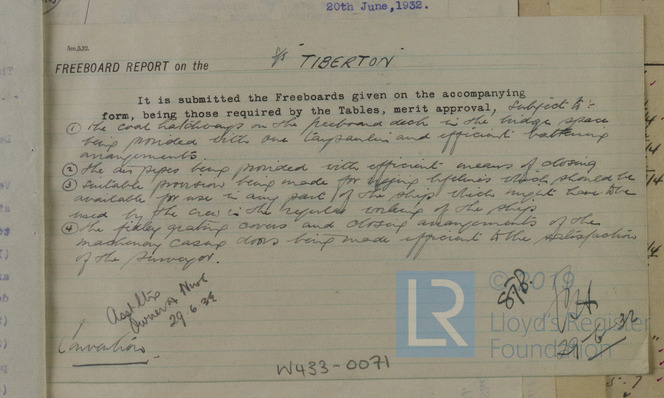 20th June, 1932.
FREEBOARD REPORT on the S/S "TIBERTON"
It is submitted the Freeboards given on the accompanying
form, being those required by the Tables, merit approval, subject to :-
① The coal hatchways on the freeboard deck in the bridge space
being provided with one tarpaulin and efficient battening
arrangements
② The air pipes being provided with efficient means of closing
③ Suitable provision being made for rigging lifelines which should be
available for use in any part of the ship which might have to be
used by the crew in the regular working of the ship
④ The fidley grating covers and closing arrangements of the
machinery casing doors being made efficient to the satisfaction
of the surveyor.
Owners
29.6.32
Convention.
W433-0071
LR
© 2019
Lloyd's Register
Foundation